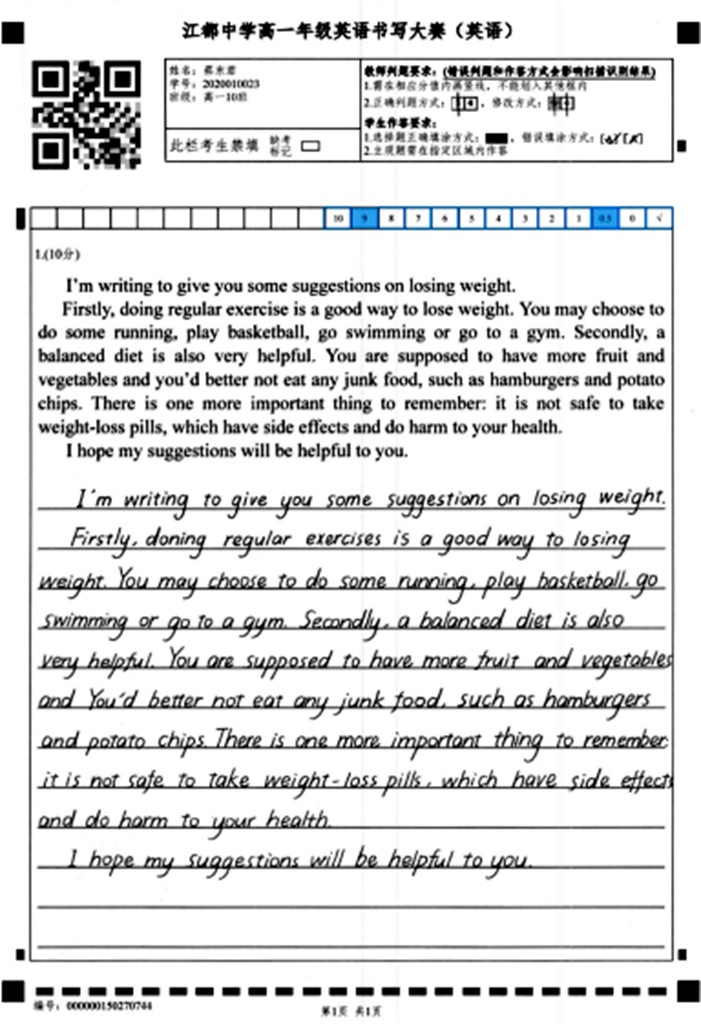 江都中学高一年级英语书写大赛（英语）
姓名：
学号：2020010023
班级：高一10班
此栏考生禁填 缺考标记
教师判题要求：(错误判题和作答方式会影响扫描识别结果)
1.需在相应分值内画竖线，不能划入其他框内
2.正确判题方式： ，修改方式：
学生作答要求：
1.选择题正确填涂方式： ，错误填涂方式：
2.主观题要在指定区域内作答
10 9 8 7 6 5 4 3 2 1 0.5 0 √
1.(10分)
I'm writing to give you some suggestions on losing weight.
Firstly, doing regular exercise is a good way to lose weight. You may choose to
do some running, play basketball, go swimming or go to a gym. Secondly, a
balanced diet is also very helpful. You are supposed to have more fruit and
vegetables and you'd better not eat any junk food, such as hamburgers and potato
chips. There is one more important thing to remember: it is not safe to take
weight-loss pills, which have side effects and do harm to your health.
I hope my suggestions will be helpful to you.
I'm writing to give you some suggestions on losing weight.
Firstly, doning regular exercises is a good way to losing
weight. You may choose to do some running, play basketball, go
swimming or go to a gym. Secondly, a balanced diet is also
very helpful. You are supposed to have more fruit and vegetables
and You'd better not eat any junk food, such as hamburgers
and potato chips. There is one more important thing to remember:
it is not safe to take weight-loss pills, which have side effects
and do harm to your health.
I hope my suggestions will be helpful to you.
编号：000000150270744
第1页 共1页